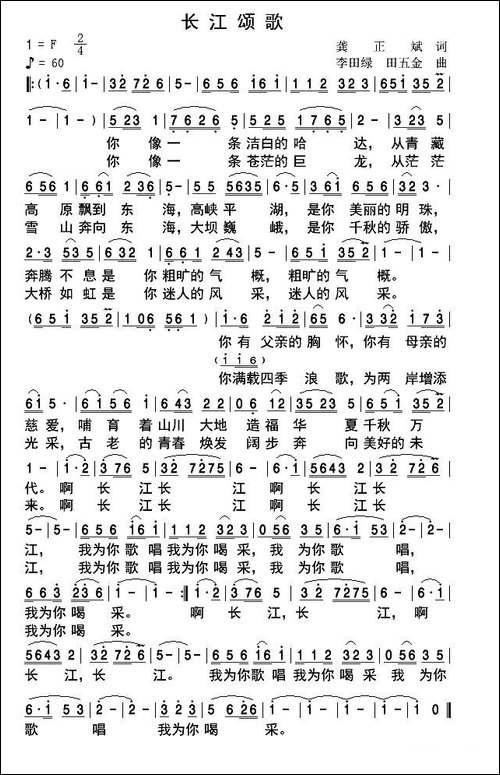 长江颂歌
1=F 2/4
♪=60
龚正斌 词
李田绿 田五金 曲
‖:(i·6|i-|32 726|5-|656 i6i|112 323|0561 352|
1-|1-)|5 23|7626|5-|535i|6·i|523|
你像一条洁白的哈达，从青藏
你像一条苍茫的巨龙，从茫茫
656i|661 23i|5-|55 5635|6·i|656 i|323|
高原飘到东海，高峡平湖，是你美丽的明珠，
雪山奔向东海，大坝巍峨，是你千秋的骄傲，
2·3 535|6·i|3i2|661|23i|651 352|1-|
奔腾不息是你粗旷的气概，粗旷的气概。
大桥如虹是你迷人的风采，迷人的风采。
(651 352|106 561)|i·6|2i2|i·6|337|
你有父亲的胸怀，你有母亲的
(ii6)
你满载四季浪歌，为两岸增添
615·|663|123|223 2i2|06 12|3523 5|651 352|
慈爱，哺育着山川大地造福华夏千秋万
光采，古老的青春焕发阔步奔向美好的未
1-|i·2|376 5|32 7275|6-|i·6|5643|32 726|
代。啊长江长江啊长江长
来。啊长江长江啊长江长
5-|5-|656 i6i|112 323|056 35|6·i 53|
江，我为你歌唱我为你喝采，我为你歌唱，
江，我为你歌唱我为你喝采，我为你歌唱，
663 236|i-|i-:‖i·2|376 5|32 7275|6-|i·6|
我为你喝采。啊长江长，江，啊
我为你喝采。
5643|32 726|5-|5-|656 i6i|112 323|056 35|
长江，长江。我为你歌唱我为你喝采我为你
6·i 53|2-|2-|3·5 32i|i-|i-|i-|i 0‖
歌唱我为你喝采。